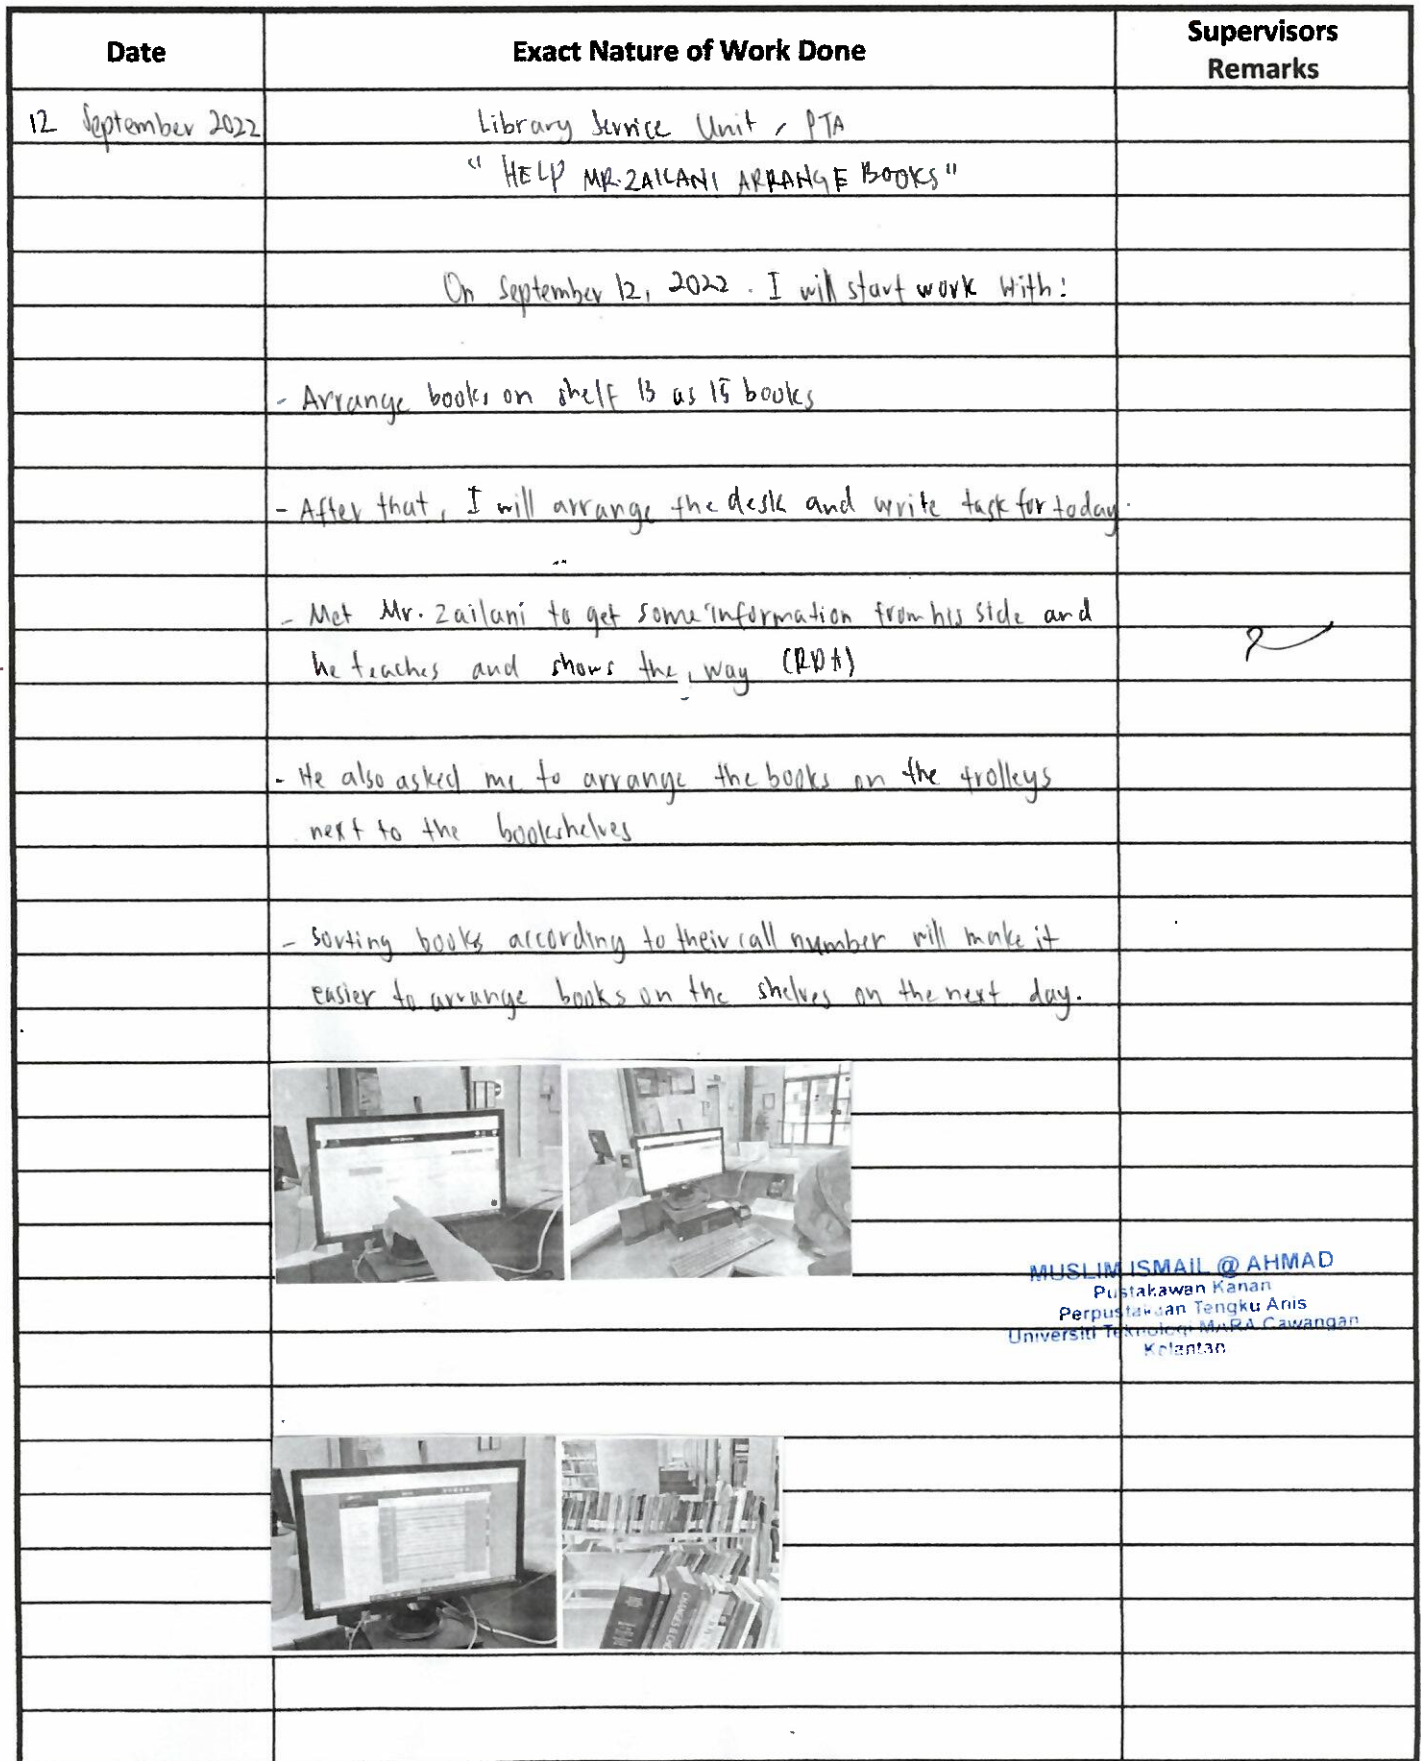 Date
Exact Nature of Work Done
Supervisors
Remarks
12 September 2022
Library Service Unit, PTA
" HELP MR. ZAILANI ARRANGE BOOKS"
On September 12, 2022. I will start work with:
- Arrange books on shelf 13 as 15 books
- After that, I will arrange the desk and write task for today.
- Met Mr. Zailani to get some information from his side and
he teaches and shows the way (RDA)
- He also asked me to arrange the books on the trolleys
next to the bookshelves
- Sorting books according to their call number will make it
easier to arrange books on the shelves on the next day.
MUSLIM ISMAIL @ AHMAD
Pustakawan Kanan
Perpustakaan Tengku Anis
Universiti Teknologi MARA Cawangan
Kelantan